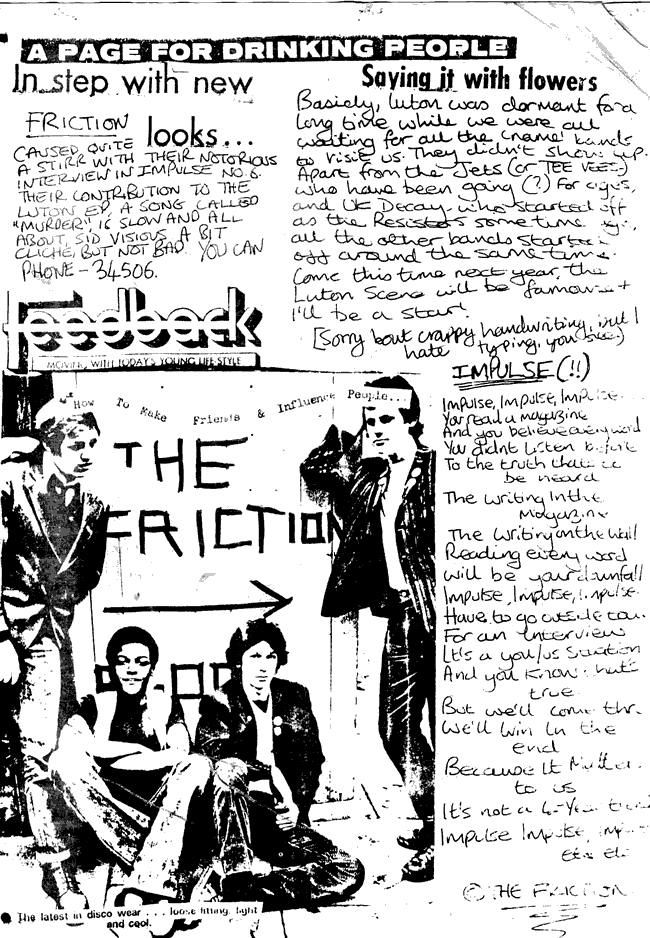 A PAGE FOR DRINKING PEOPLE
In step with new
looks...
FRICTION
CAUSED QUITE
A STIRR WITH THEIR NOTORIOUS
INTERVIEW IN IMPULSE NO 6.
THEIR CONTRIBUTION TO THE
LUTON EP, A SONG CALLED
"MURDER" IS SLOW AND ALL
ABOUT SID VISIOUS. A BIT
CLICHE, BUT NOT BAD. YOU CAN
PHONE - 34506.
Saying it with flowers
Basicly, Luton was dormant for a
long time while we were all
waiting for all the 'name' bands
to visit us. They didn't show up.
Apart from the Jets (or TEE VEES)
who have been going (?) for ages,
and UK Decay who started off
as the Resistors some time
all the other bands started
off around the same time.
Come this time next year, the
Luton Scene will be famous +
I'll be a Star!
[Sorry bout crappy handwriting, but I
hate typing, you see)
feedback
MOVING WITH TODAY'S YOUNG LIFE STYLE
How To Make Friends & Influence People...
THE
FRICTION
The latest in disco wear . . . loose fitting, light
and cool.
IMPULSE(!!)
Impulse, Impulse, Impulse
You read a magazine
And you believe every word
You didnt Listen before
To the truth that
be heard
The writing In the
Magazine
The Writing on the Wall
Reading every word
will be your dunfall
Impulse, Impulse, Impulse.
Have to go outside
For an Interview
It's a you/us Situation
And you know that's
true
But we'll come thr
We'll win In the
end
Because It Matter
to us
It's not a 4-Year
Impulse Impulse,
© THE FRICTION